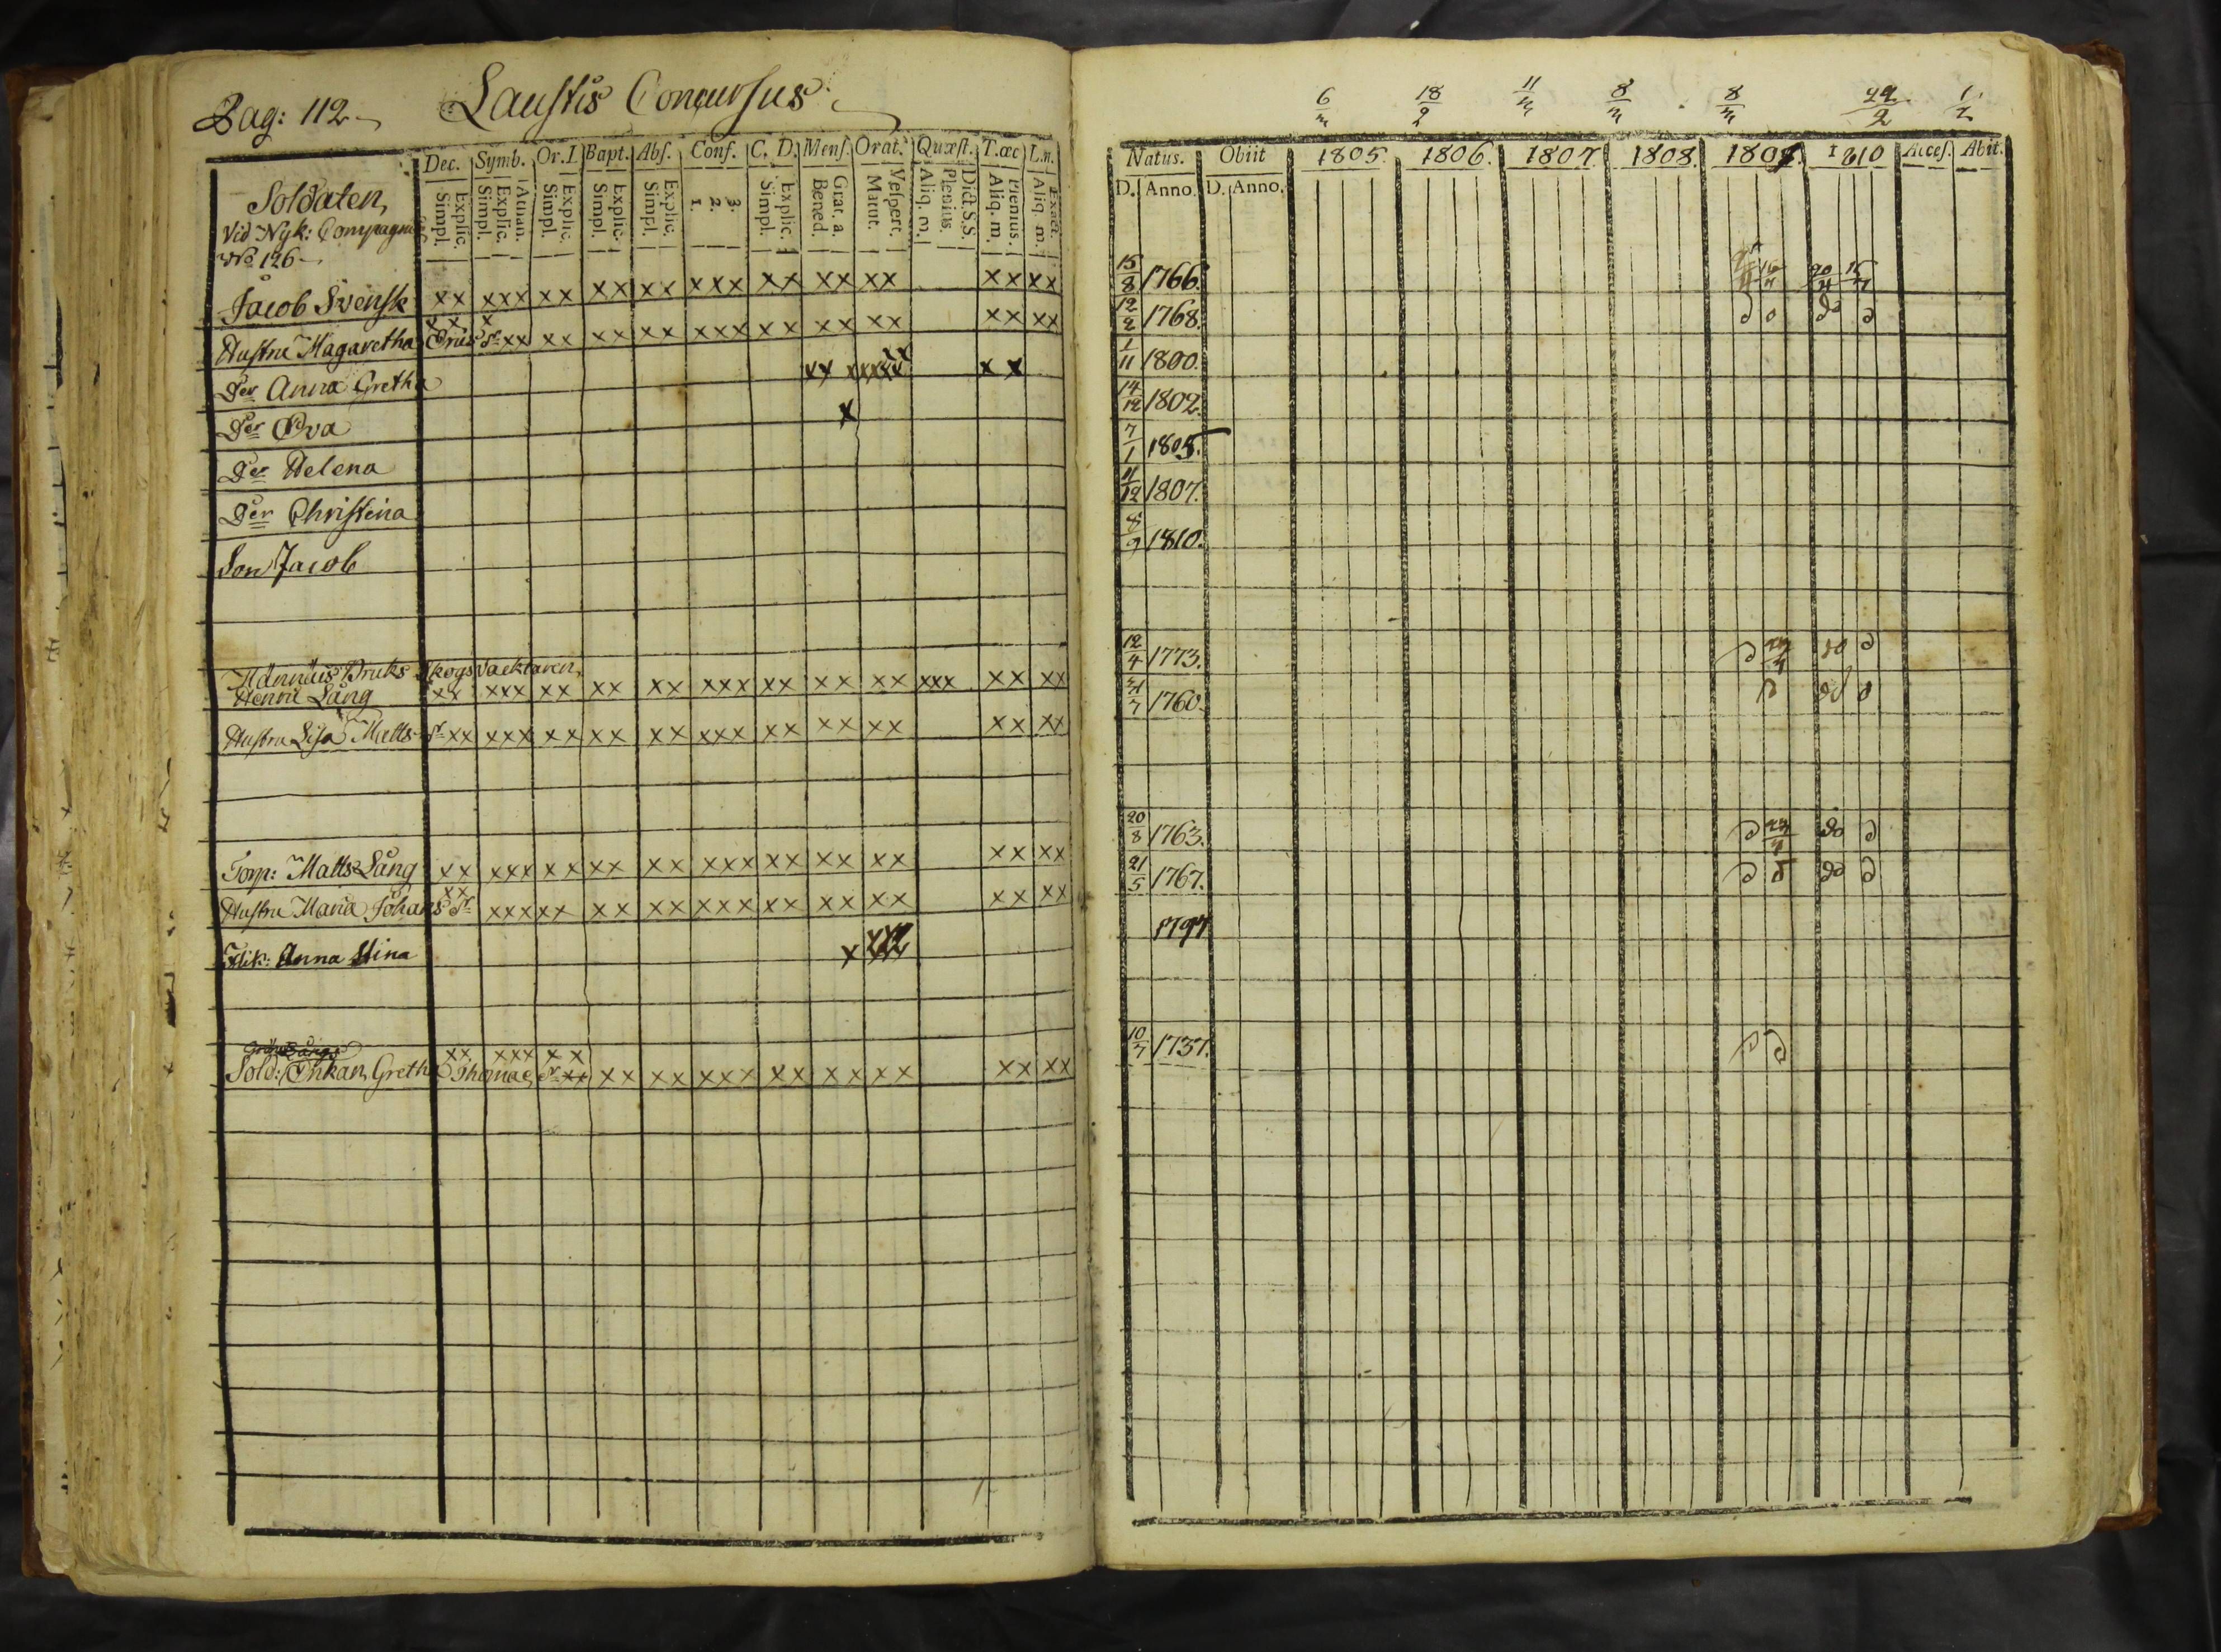 Pag: 112.
Laustis Concursus
Dec. Symb. Or. I Bapt. Abs. Conf. C. D. Mens. Orat. Quæst. T. œc L. n.
Explic. Simpl. Athan. Explic. Simpl. Explic. Simpl. Explic. Simpl. Explic. Simpl. 3. 2. 1. Explic. Simpl. Grat. a. Bened. Vespert. Matut. Dict. S. S. Plenius. Aliq. m. Plenius. Aliq. m. Exacte. Aliq. m.
Soldaten,
Vid Nyk: Compagnie
No 126
Jacob Svensk xx xxx xx xx xx xxx xx xx xx xx xx
Hustru Magaretha Ericsdr xx x xx xx xx xx xxx xx xx xx xx xx
Der Anna Gretha xx xxxxx xx xx
Der Eva x
Der Helena
Der Christina
Son Jacob
Bruks Skogsvacktaren,
Henric Lång xx xxx xx xx xx xxx xx xx xx xxx xx xx
Hustru Lisa Mattsdr xx xxx xx xx xx xxx xx xx xx xx xx
Torp: Matts Lång xx xxx xx xx xx xxx xx xx xx xx xx
Hustru Maria Johansdr xx xxx xx xx xx xxx xx xx xx xx xx
Flik: Anna Stina x
Sold: Enkan Greth Thomaedr xx xxx xx xx xx xx xxx xx xx xx xx xx
6 18/2 11 8 8 29/2 1/2
Natus. Obiit 1805. 1806. 1807. 1808. 1809. 1810 Acces. Abit.
D. Anno. D. Anno.
15/8 1766.
12/2 1768. do
1/11 1800.
14/12 1802.
7/1 1805.
11/12 1807.
8/9 1810.
12/4 1773. do
1760. do
20/8 1763. do
21/5 1767. do
1797
10/7 1737.